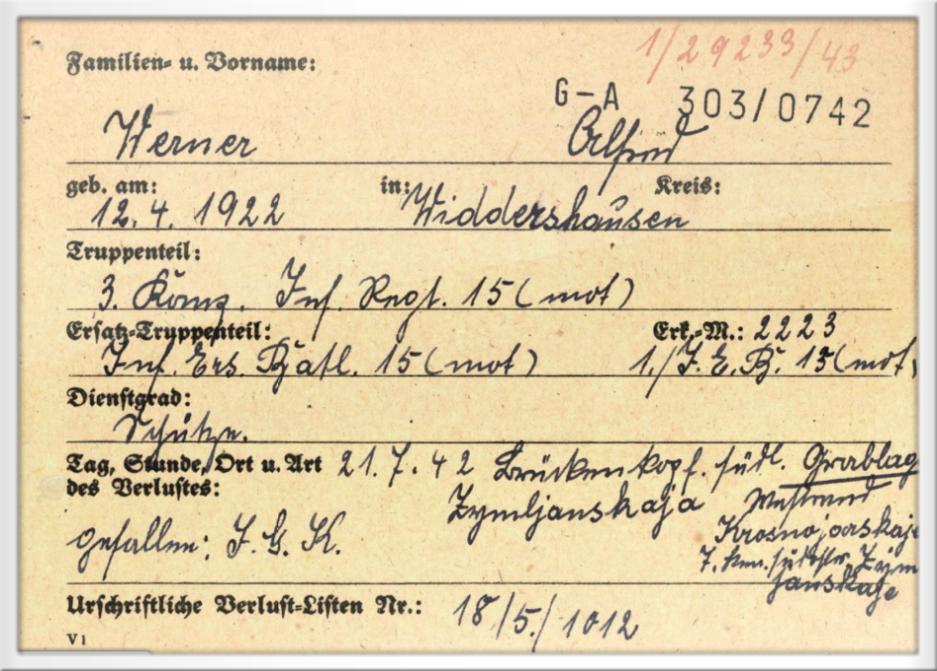 1/29233/43
Familien- u. Vorname:
G-A 303/0742
Werner Alfred
geb. am: in: Kreis:
12.4. 1922 Widdershausen
Truppenteil:
3. Komp. Inf. Regt. 15 (mot)
Ersatz-Truppenteil: Erk.-M.: 2223
Inf. Ers. Batl. 15 (mot) 1./J. E. B. 15 (mot)
Dienstgrad:
Schütze.
Tag, Stunde, Ort u. Art 21.7.42 Brückenkopf. südl. Grablag
des Verlustes: Zymljanskaja Westrand
Krosnojarskaje
gefallen: I. G. K. 7. km. Zym
janskaje
Urschriftliche Verlust-Listen Nr.: 18/5./1012
V 1